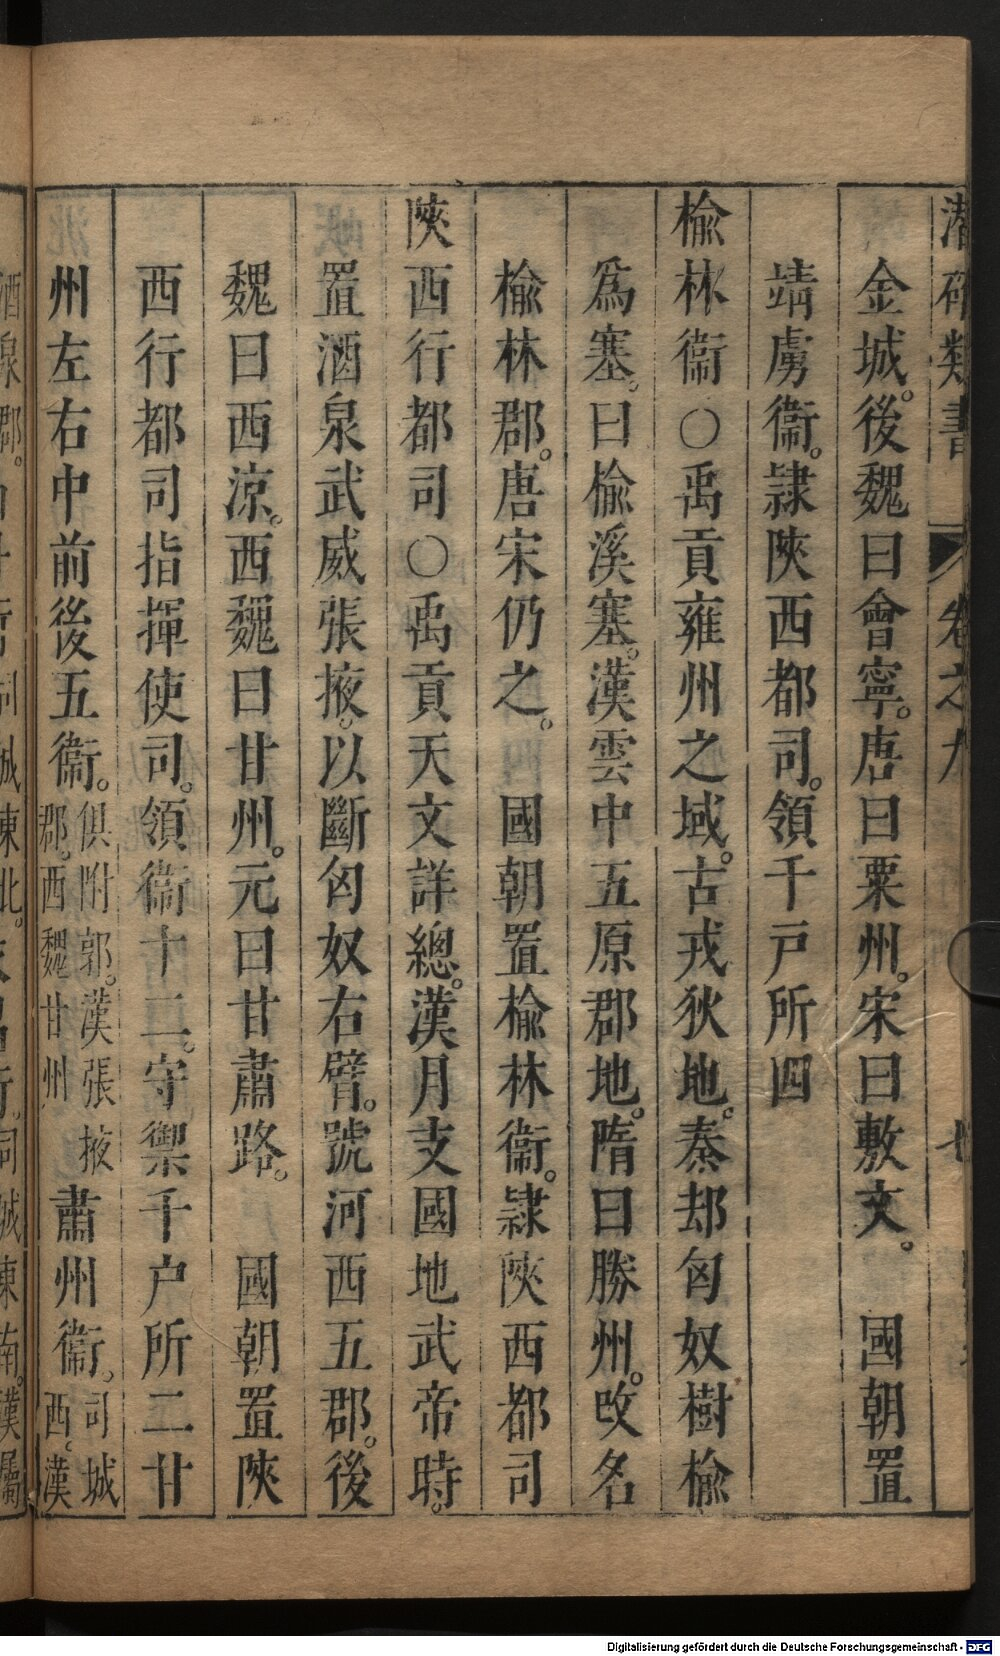 潛確類書 卷之九 七
金城。後魏曰會寧。唐曰粟州。宋曰敷文。 國朝置
靖虜衞。隷陝西都司。領千戸所四
榆林衞○禹貢雍州之域。古戎狄地。秦却匈奴樹榆
爲塞。曰榆溪塞。漢雲中五原郡地。隋曰勝州。改名
榆林郡。唐宋仍之。 國朝置榆林衞。隷陝西都司
陝西行都司○禹貢天文詳總。漢月支國地武帝時。
置酒泉武威張掖。以斷匈奴右臂。號河西五郡。後
魏曰西涼。西魏曰甘州。元曰甘肅路。 國朝置陝
西行都司指揮使司。領衞十二。守禦千户所二甘
州左右中前後五衞。俱附郭。漢張掖郡。西魏甘州 肅州衞。司城西。漢
酒泉郡。
Digitalisierung gefördert durch die Deutsche Forschungsgemeinschaft - DFG